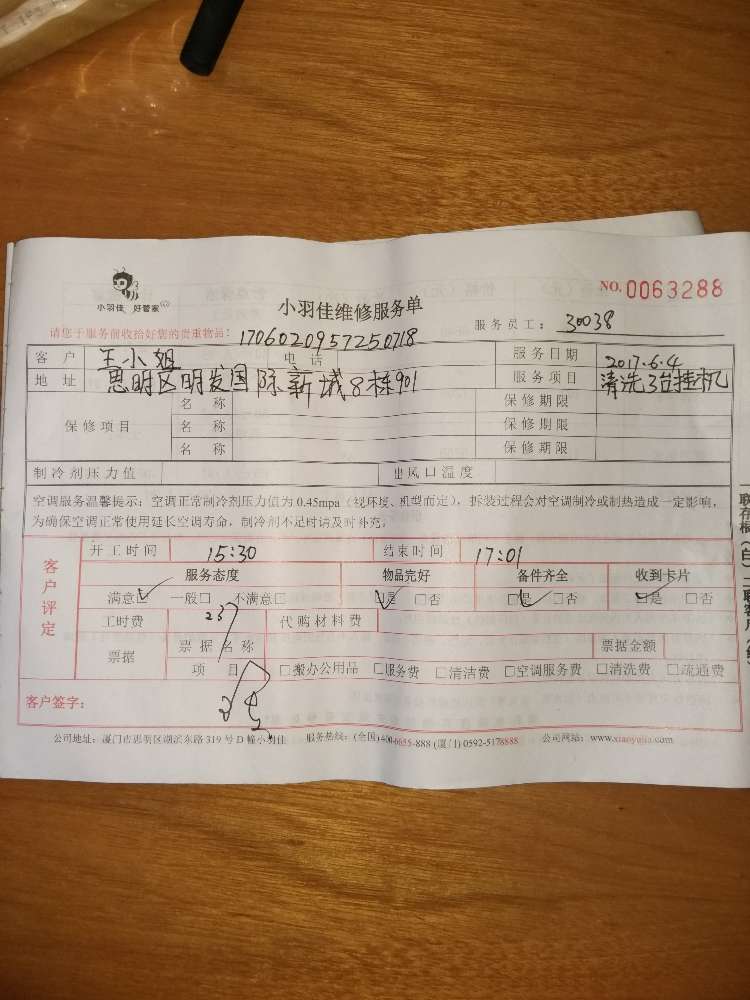 小羽佳 好管家
小羽佳维修服务单
NO. 0063288
请您于服务前收拾好您的贵重物品:
1706020957250718
服务员工: 30038
客户 王小姐 电话 服务日期 2017.6.4
地址 思明区明发国际新城8栋901 服务项目 清洗3台挂机
保修项目
名称 保修期限
名称 保修期限
名称 保修期限
制冷剂压力值 出风口温度
空调服务温馨提示: 空调正常制冷剂压力值为0.45mpa (视环境、机型而定), 拆装过程会对空调制冷或制热造成一定影响,
为确保空调正常使用延长空调寿命, 制冷剂不足时请及时补充。
客户评定
开工时间 15:30 结束时间 17:01
服务态度 物品完好 备件齐全 收到卡片
满意☑ 一般□ 不满意□ ☑是 □否 ☑是 □否 ☑是 □否
工时费 237 代购材料费
票据 票据名称 票据金额
项目 □搬办公用品 □服务费 □清洁费 □空调服务费 □清洗费 □疏通费
客户签字:
公司地址: 厦门市思明区湖滨东路319号D幢小羽佳 服务热线: (全国)400-6655-888 (厦门) 0592-5178888 公司网站: www.xiaoyujia.com